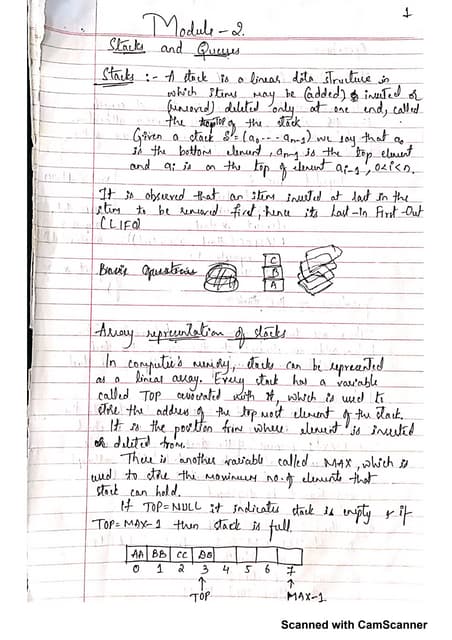 1
Module - 2.
Stacks and Queues
Stacks :- A stack is a linear data structure in
which items may be (added) inserted or
(removed) deleted only at one end, called
the TOP of the stack
Given a stack S = (a0, ... an-1) we say that a0
is the bottom element, an-1 is the top element
and ai is on the top of element ai-1, 0<i<n.
It is observed that an item inserted at last in the
item to be removed first, hence its Last-in First-Out
(LIFO)
Basic Operations
C
B
A
Array representation of stacks
In computer's memory, stacks can be represented
as a linear array. Every stack has a variable
called TOP associated with it, which is used to
store the address of the top most element of the stack.
It is the position from where element is inserted
or deleted from.
There is another variable called MAX, which is
used to store the maximum no. of elements that
stack can hold.
If TOP=NULL it indicates stack is empty & if
TOP=MAX-1 then stack is full.
AA BB CC DD
0 1 2 3 4 5 6 7
TOP MAX-1
Scanned with CamScanner